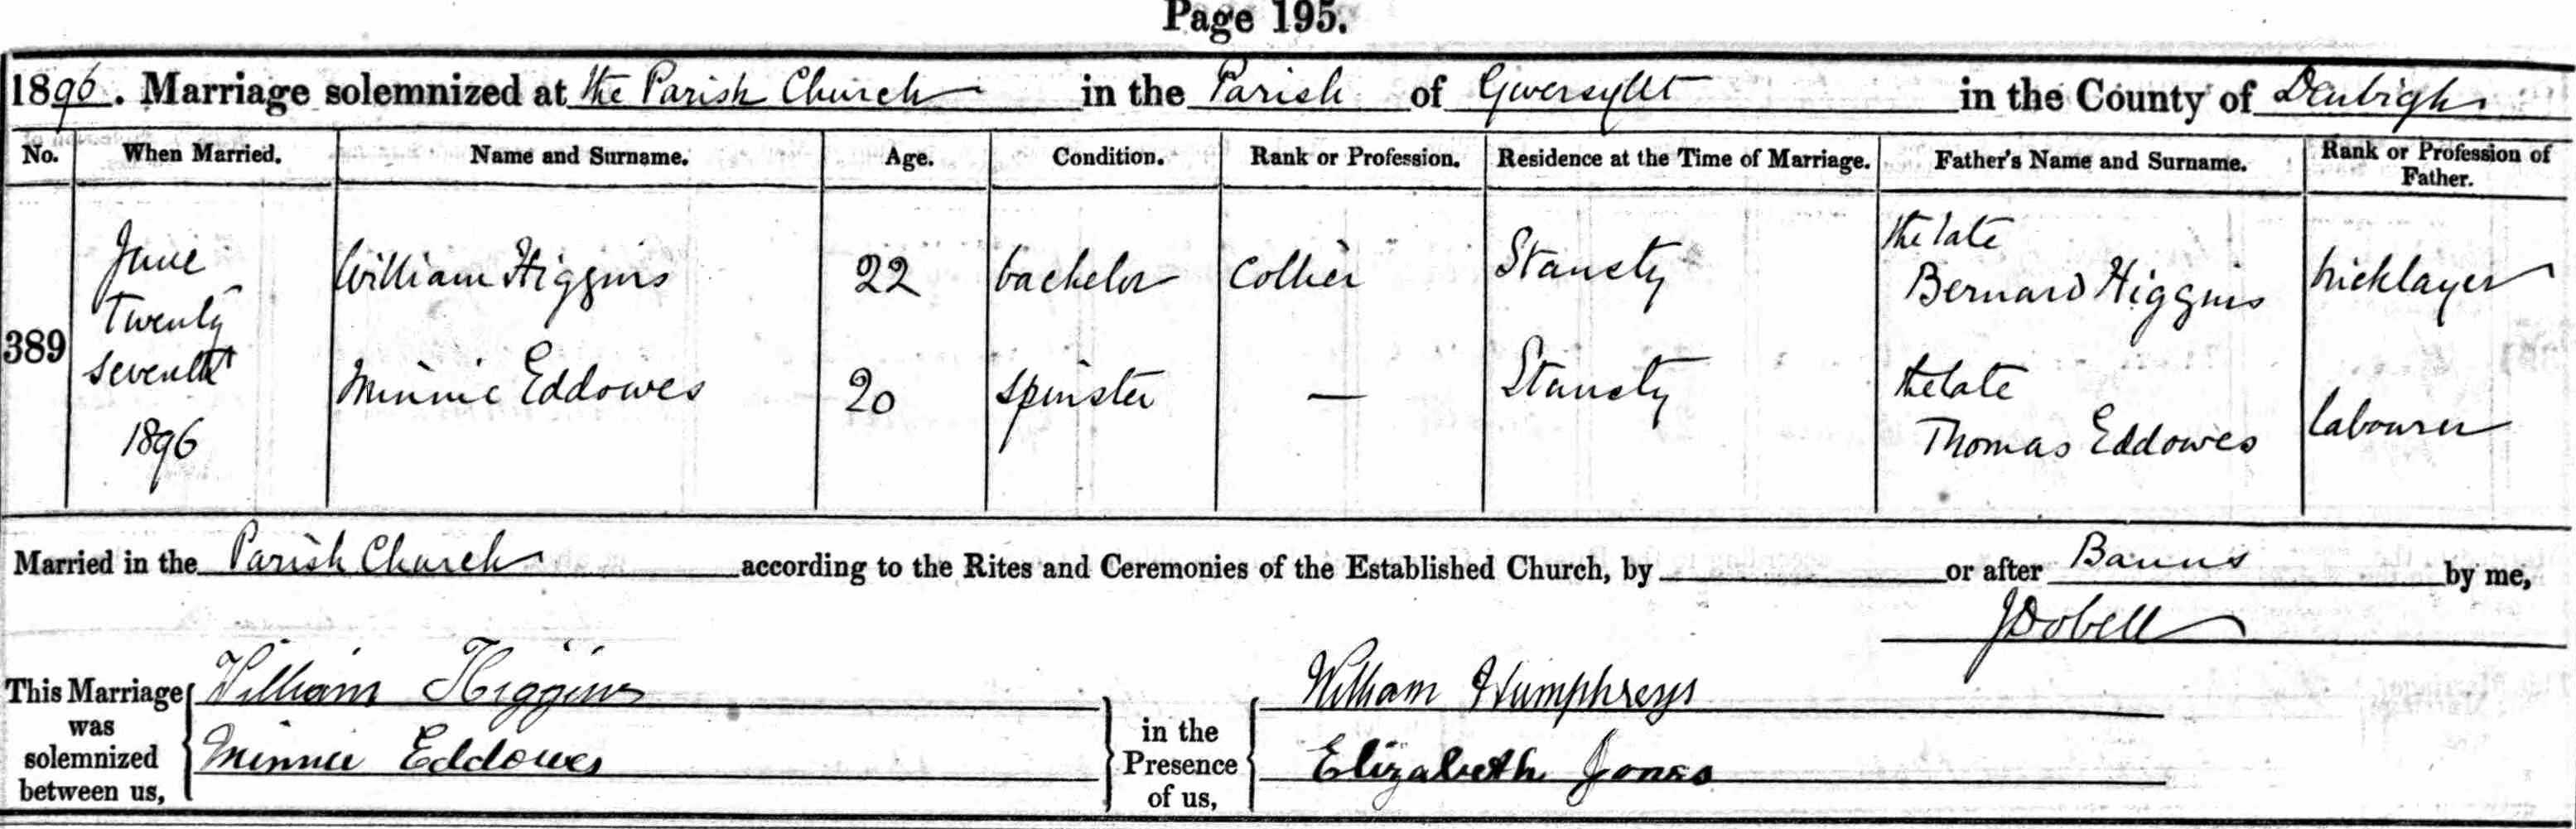 Page 195.
1896. Marriage solemnized at the Parish Church in the Parish of Gwersyllt in the County of Denbigh
No. When Married. Name and Surname. Age. Condition. Rank or Profession. Residence at the Time of Marriage. Father's Name and Surname. Rank or Profession of Father.
389
June
Twenty
seventh
1896
William Higgins 22 bachelor Collier Stansty the late Bernard Higgins bricklayer
Minnie Eddowes 20 spinster — Stansty the late Thomas Eddowes labourer
Married in the Parish Church according to the Rites and Ceremonies of the Established Church, by or after Banns by me,
J Dobell
This Marriage was solemnized between us,
William Higgins
Minnie Eddowes
in the Presence of us,
William Humphreys
Elizabeth Jones